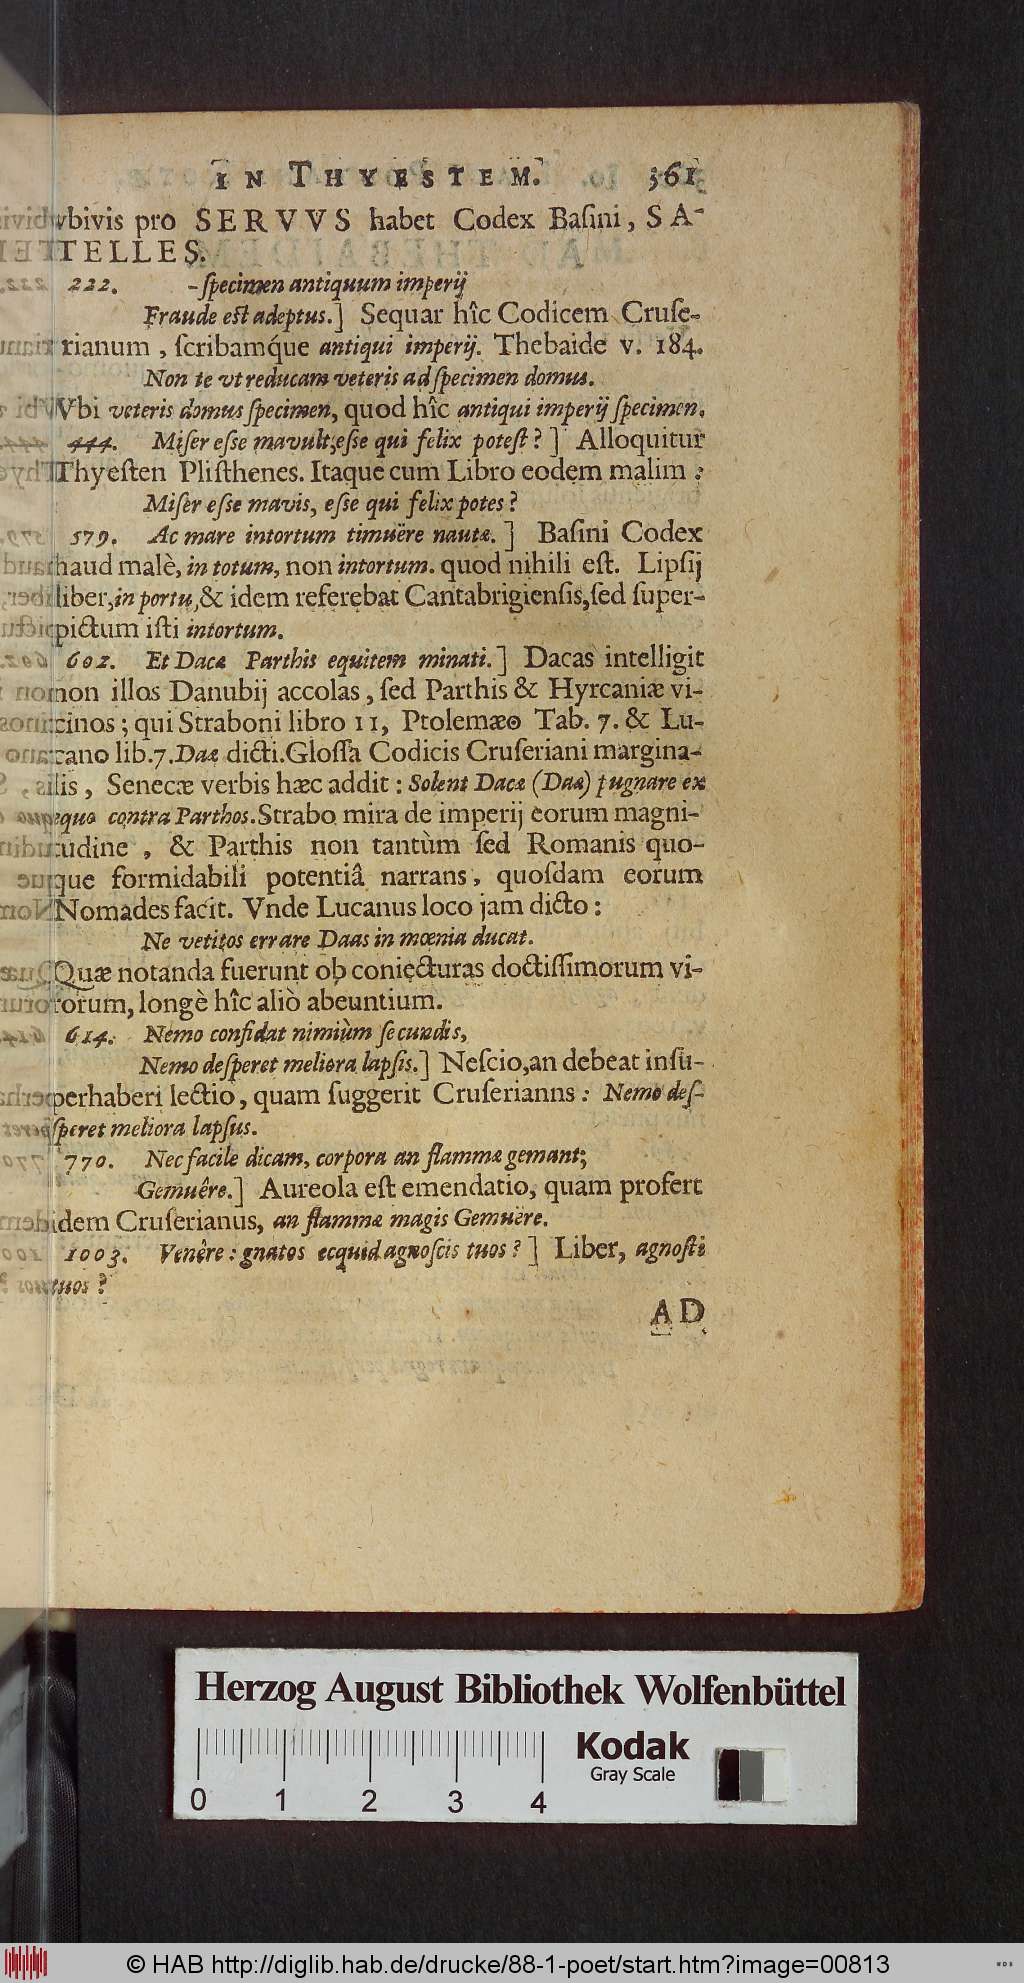 IN THYESTEM. 361
vbivis pro SERVVS habet Codex Basini, SA-
TELLES.
222. -specimen antiquum imperij
Fraude est adeptus.] Sequar hîc Codicem Cruse-
rianum, scribamq́ue antiqui imperij. Thebaide v. 184.
Non te vt reducam veteris ad specimen domus.
Vbi veteris domus specimen, quod hîc antiqui imperij specimen.
444. Miser esse mavult, esse qui felix potest?] Alloquitur
Thyesten Plisthenes. Itaque cum Libro eodem malim:
Miser esse mavis, esse qui felix potes?
579. Ac mare intortum timuëre nautæ.] Basini Codex
haud malè, in totum, non intortum. quod nihili est. Lipsij
liber, in portu, & idem referebat Cantabrigiensis, sed super-
pictum isti intortum.
602. Et Dacæ Parthis equitem minati.] Dacas intelligit
non illos Danubij accolas, sed Parthis & Hyrcaniæ vi-
cinos; qui Straboni libro 11, Ptolemæo Tab. 7. & Lu-
cano lib. 7. Daæ dicti. Glossa Codicis Cruseriani margina-
lis, Senecæ verbis hæc addit: Solent Dacæ (Daæ) pugnare ex
equo contra Parthos. Strabo mira de imperij eorum magni-
tudine, & Parthis non tantùm sed Romanis quo-
que formidabili potentiâ narrans, quosdam eorum
Nomades facit. Vnde Lucanus loco jam dicto:
Ne vetitos errare Daas in mœnia ducat.
Quæ notanda fuerunt ob coniecturas doctissimorum vi-
rorum, longè hîc aliò abeuntium.
614. Nemo confidat nimiùm secundis,
Nemo desperet meliora lapsis.] Nescio, an debeat insu-
perhaberi lectio, quam suggerit Cruserianns: Nemo des-
speret meliora lapsus.
770. Nec facile dicam, corpora an flammæ gemant;
Gemuêre.] Aureola est emendatio, quam profert
idem Cruserianus, an flammæ magis Gemuere.
1003. Venêre: gnatos ecquid agnoscis tuos?] Liber, agnosti
tuos?
AD
Herzog August Bibliothek Wolfenbüttel
Kodak
Gray Scale
0 1 2 3 4
© HAB http://diglib.hab.de/drucke/88-1-poet/start.htm?image=00813